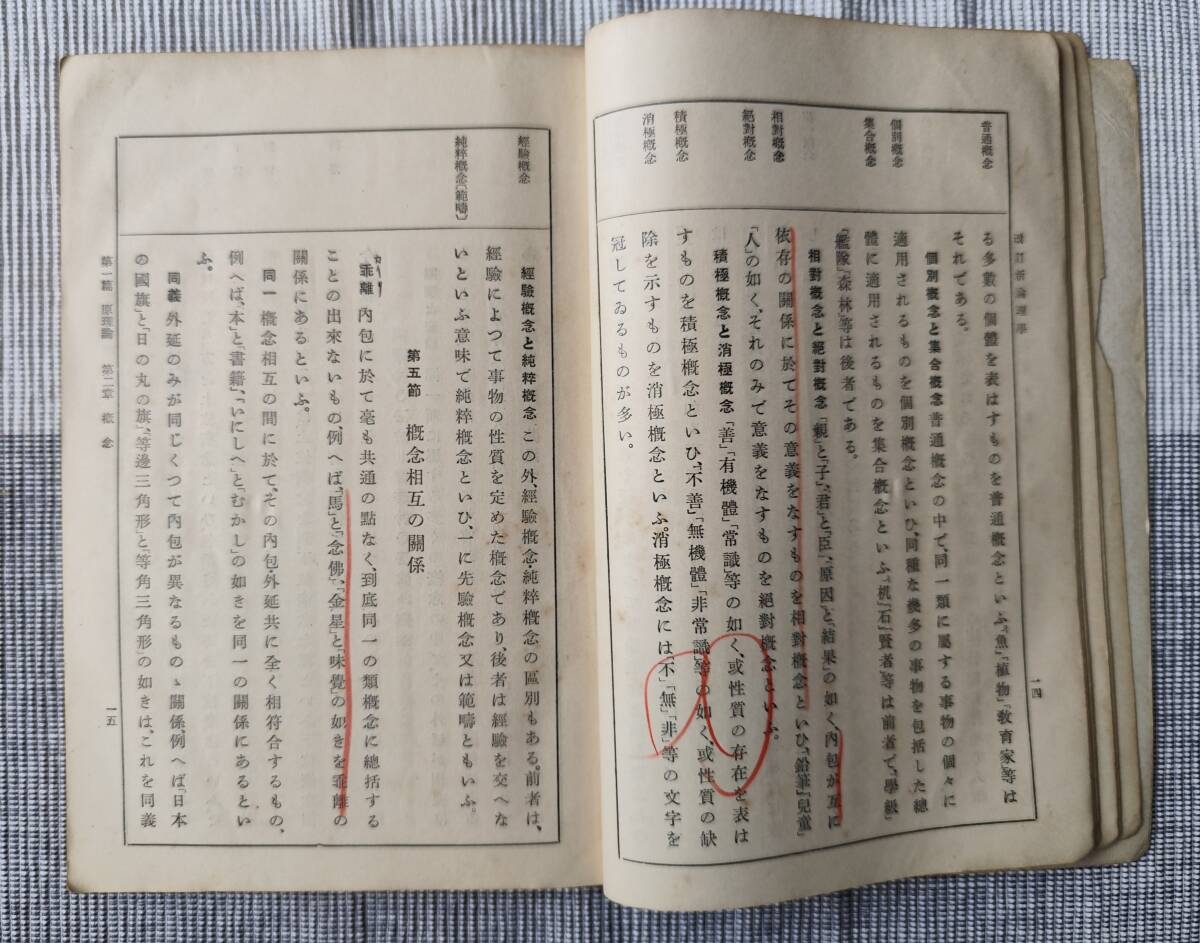 改訂新論理學
一四
普通概念
個別概念
集合概念
相對概念
絕對概念
積極概念
消極概念
る多數の個體を表はすものを普通概念といふ。「魚」「植物」「敎育家」等は
それである。
個別概念と集合概念 普通概念の中で、同一類に屬する事物の個々に
適用されるものを個別概念といひ、同種な幾多の事物を包括した總
體に適用されるものを集合概念といふ。「机」「石」「賢者」等は前者で、「學級」
「艦隊」「森林」等は後者である。
相對概念と絕對概念 「親」と「子」、「君」と「臣」、「原因」と「結果」の如く、內包が互に
依存の關係に於てその意義をなすものを相對概念といひ、「鉛筆」「兒童」
「人」の如く、それのみで意義をなすものを絕對概念といふ。
積極概念と消極概念 「善」「有機體」「常識」等の如く、或性質の存在を表は
すものを積極概念といひ、「不善」「無機體」「非常識」等の如く、或性質の缺
除を示すものを消極概念といふ。消極概念には「不」「無」「非」等の文字を
冠してゐるものが多い。
經驗概念
純粹概念〔範疇〕
經驗概念と純粹概念 この外、經驗概念・純粹概念の區別もある。前者は、
經驗によつて事物の性質を定めた概念であり、後者は經驗を交へな
いといふ意味で純粹概念といひ、一に先驗概念又は範疇ともいふ。
第五節 概念相互の關係
乖離 內包に於て毫も共通の點なく、到底同一の類概念に總括する
ことの出來ないもの、例へば、「馬」と「念佛」、「金星」と「味覺」の如きを乖離の
關係にあるといふ。
同一 概念相互の間に於て、その內包・外延共に全く相符合するもの、
例へば、「本」と「書籍」、「いにしへ」と「むかし」の如きを同一の關係にあるとい
ふ。
同義 外延のみが同じくつて內包が異なるものゝ關係、例へば「日本
の國旗」と「日の丸の旗」、「等邊三角形」と「等角三角形」の如きは、これを同義
第一篇 原理論 第二章 概念
一五